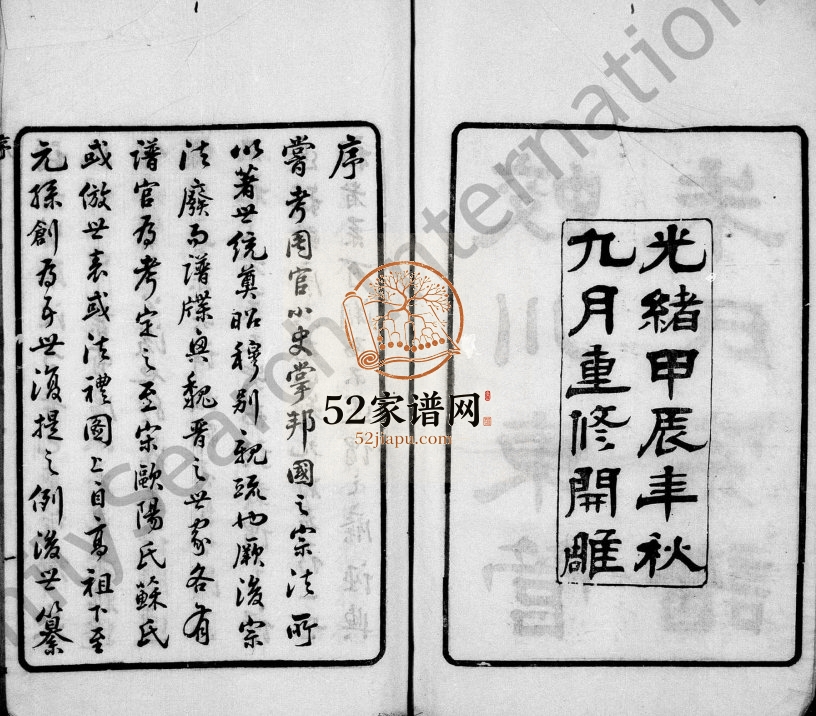 光緒甲辰年秋
九月重修開雕
序
嘗考周官小史掌邦國之宗法所
以著世統奠昭穆別親疏也厥後宗
法廢而譜牒興魏晋之世家各有
譜官為考定之至宋歐陽氏蘇氏
或倣世表或法禮圖上自高祖下至
元孫創為五世復提之例後世纂
序
52家谱网
52jiapu.com
FamilySearch International